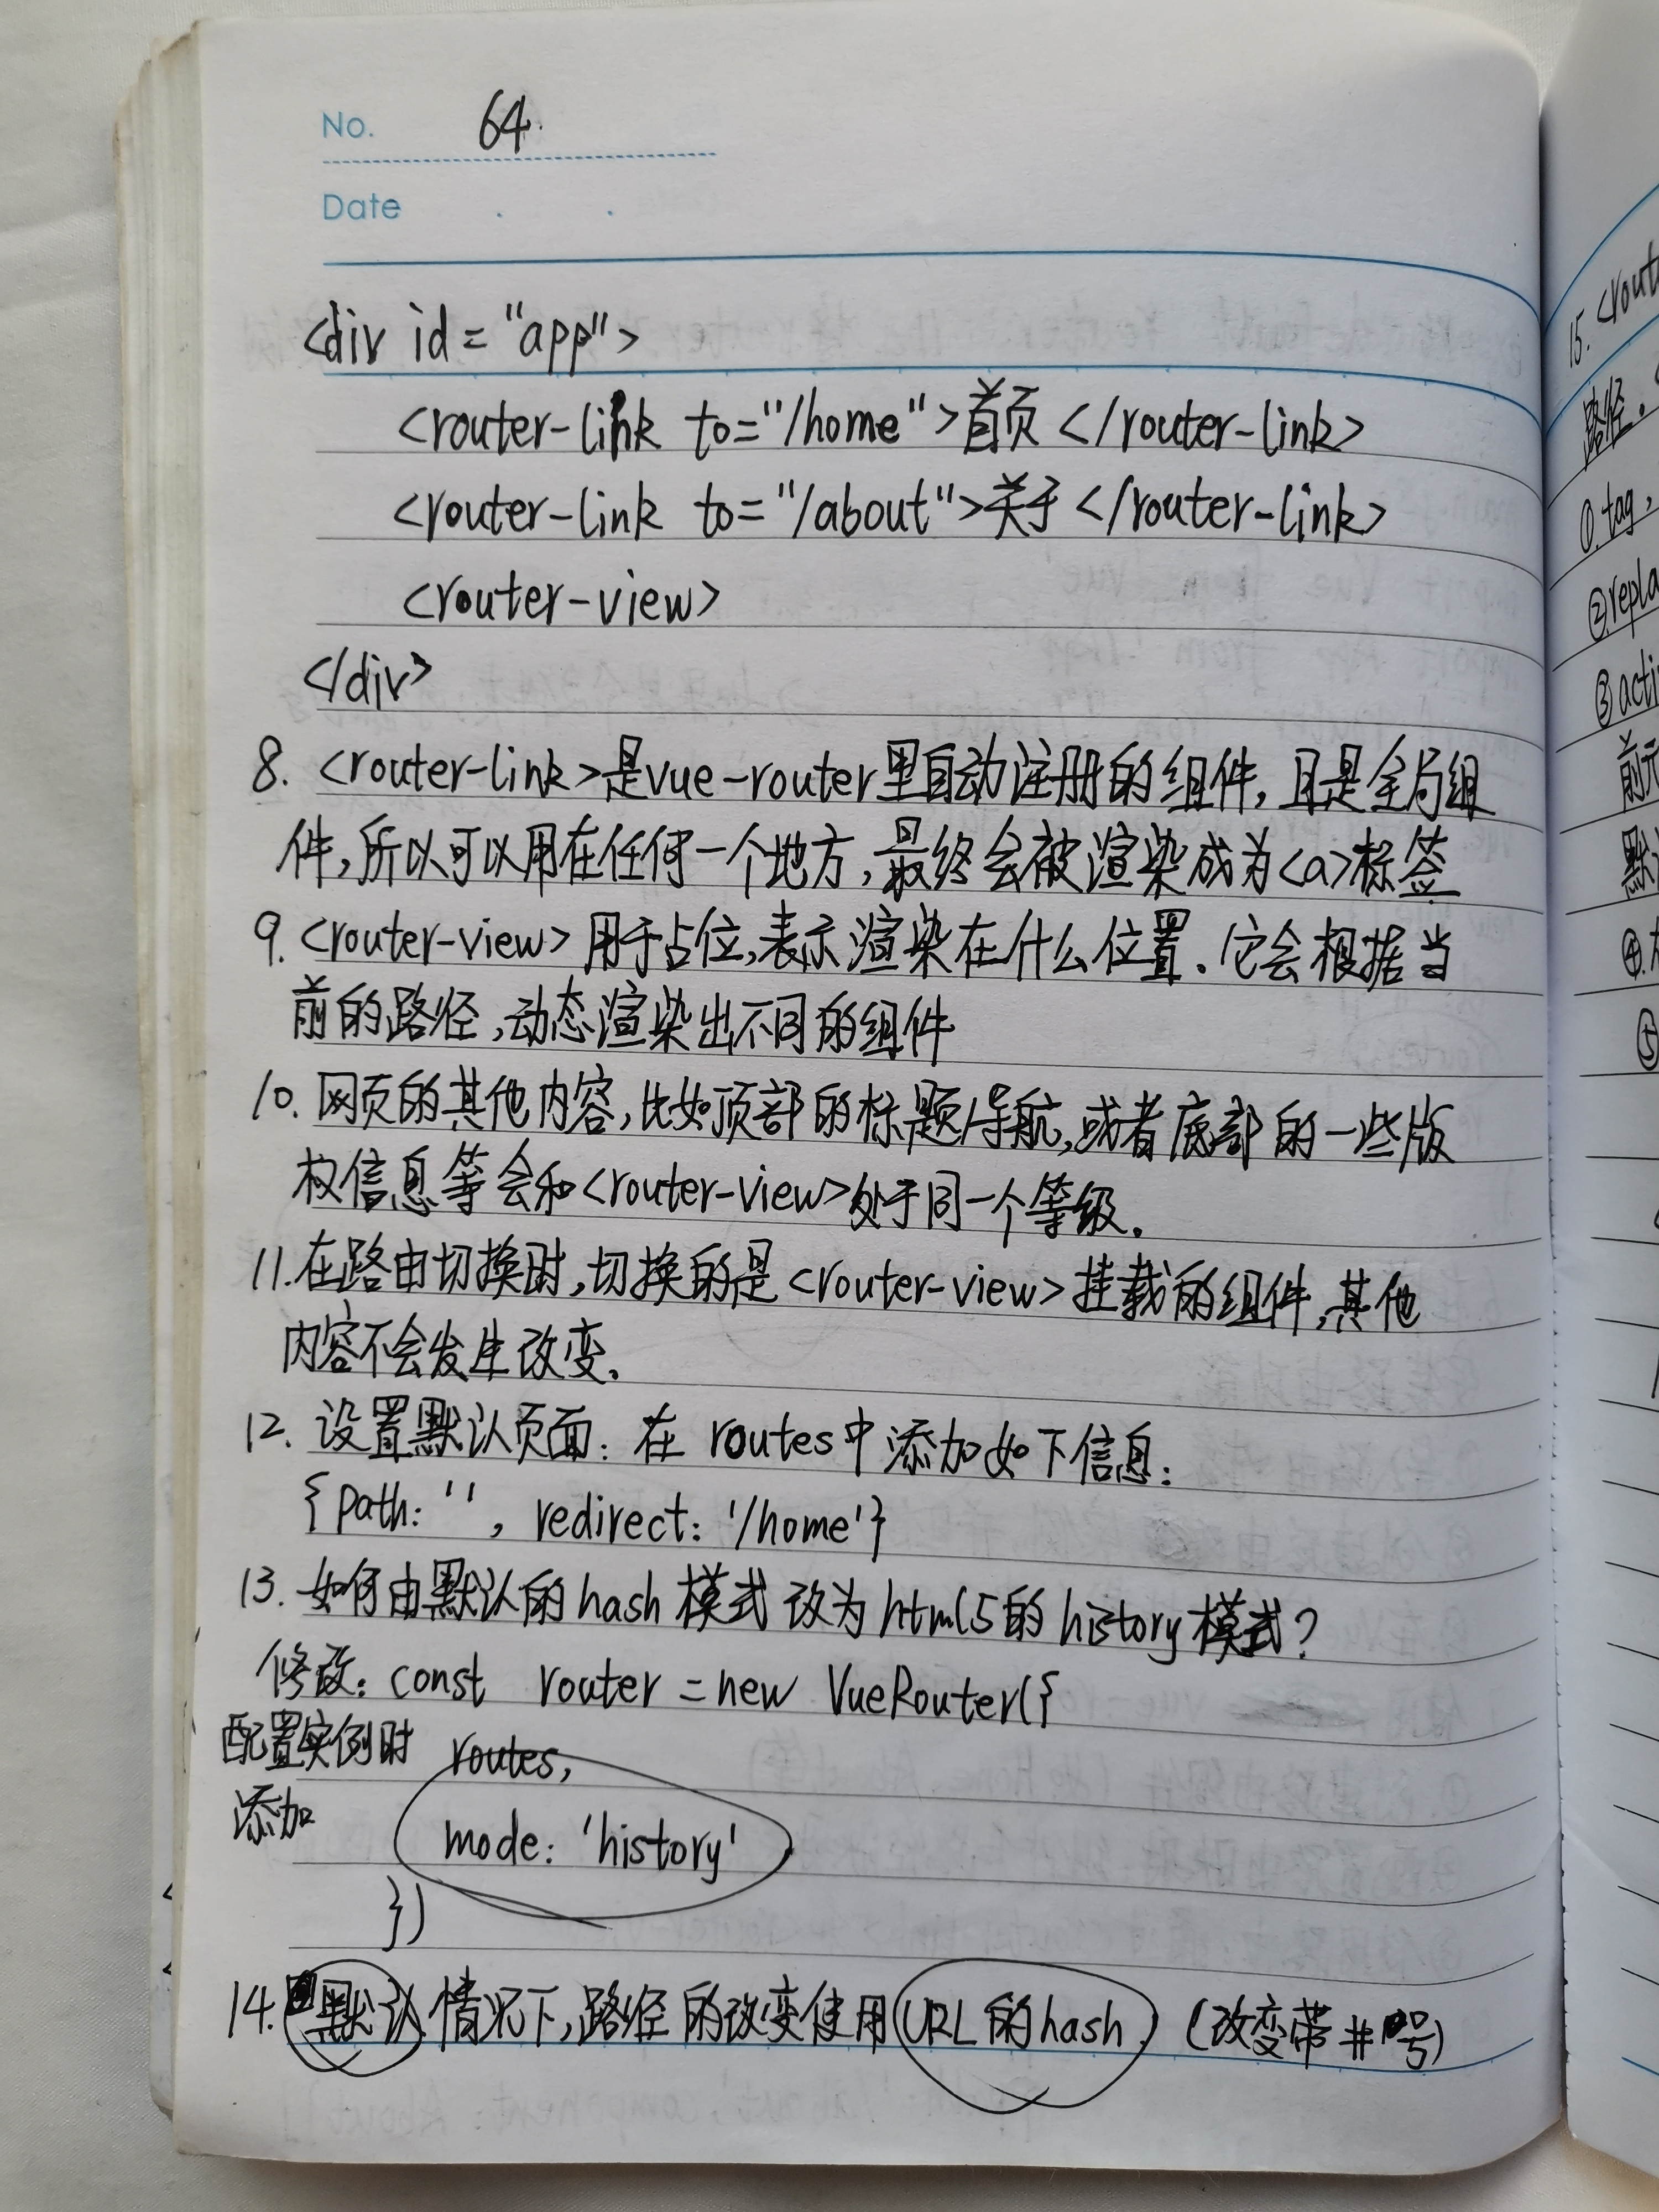 No. 64
Date
<div id="app">
<router-link to="/home">首页</router-link>
<router-link to="/about">关于</router-link>
<router-view>
</div>
8. <router-link>是vue-router里自动注册的组件,且是全局组
件,所以可以用在任何一个地方,最终会被渲染成为<a>标签
9. <router-view>用于占位,表示渲染在什么位置.它会根据当
前的路径,动态渲染出不同的组件
10. 网页的其他内容,比如顶部的标题/导航,或者底部的一些版
权信息等会和<router-view>处于同一个等级.
11.在路由切换时,切换的是<router-view>挂载的组件,其他
内容不会发生改变.
12. 设置默认页面: 在 routes中添加如下信息:
{path: '', redirect: '/home'}
13. 如何由默认的hash模式改为html5的history模式?
修改: const router = new VueRouter({
配置实例时 routes,
添加 mode: 'history'
})
14.默认情况下,路径的改变使用URL的hash. (改变带#号)
15. <rout
路径.
①.tag,
②repla
③acti
前元
默
④.
⑤